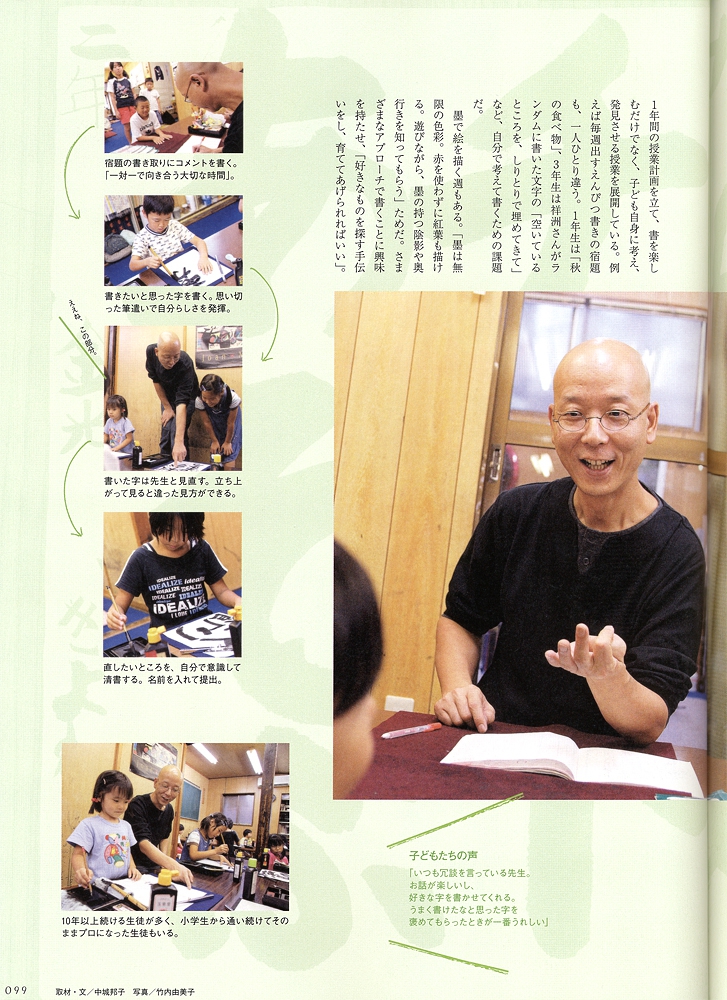 1年間の授業計画を立て、書を楽し
むだけでなく、子ども自身に考え、
発見させる授業を展開している。例
えば毎週出すえんぴつ書きの宿題
も、一人ひとり違う。1年生は「秋
の食べ物」、3年生は祥洲さんがラ
ンダムに書いた文字の「空いている
ところを、しりとりで埋めてきて」
など、自分で考えて書くための課題
だ。
墨で絵を描く週もある。「墨は無
限の色彩。赤を使わずに紅葉も描け
る。遊びながら、墨の持つ陰影や奥
行きを知ってもらう」ためだ。さま
ざまなアプローチで書くことに興味
を持たせ、「好きなものを探す手伝
いをし、育ててあげられればいい」。
宿題の書き取りにコメントを書く。
「一対一で向き合う大切な時間」。
書きたいと思った字を書く。思い切
った筆遣いで自分らしさを発揮。
ええね、この部分。
書いた字は先生と見直す。立ち上
がって見ると違った見方ができる。
IDEALIZE
直したいところを、自分で意識して
清書する。名前を入れて提出。
10年以上続ける生徒が多く、小学生から通い続けてその
ままプロになった生徒もいる。
子どもたちの声
「いつも冗談を言っている先生。
お話が楽しいし、
好きな字を書かせてくれる。
うまく書けたなと思った字を
褒めてもらったときが一番うれしい」
099
取材・文／中城邦子 写真／竹内由美子